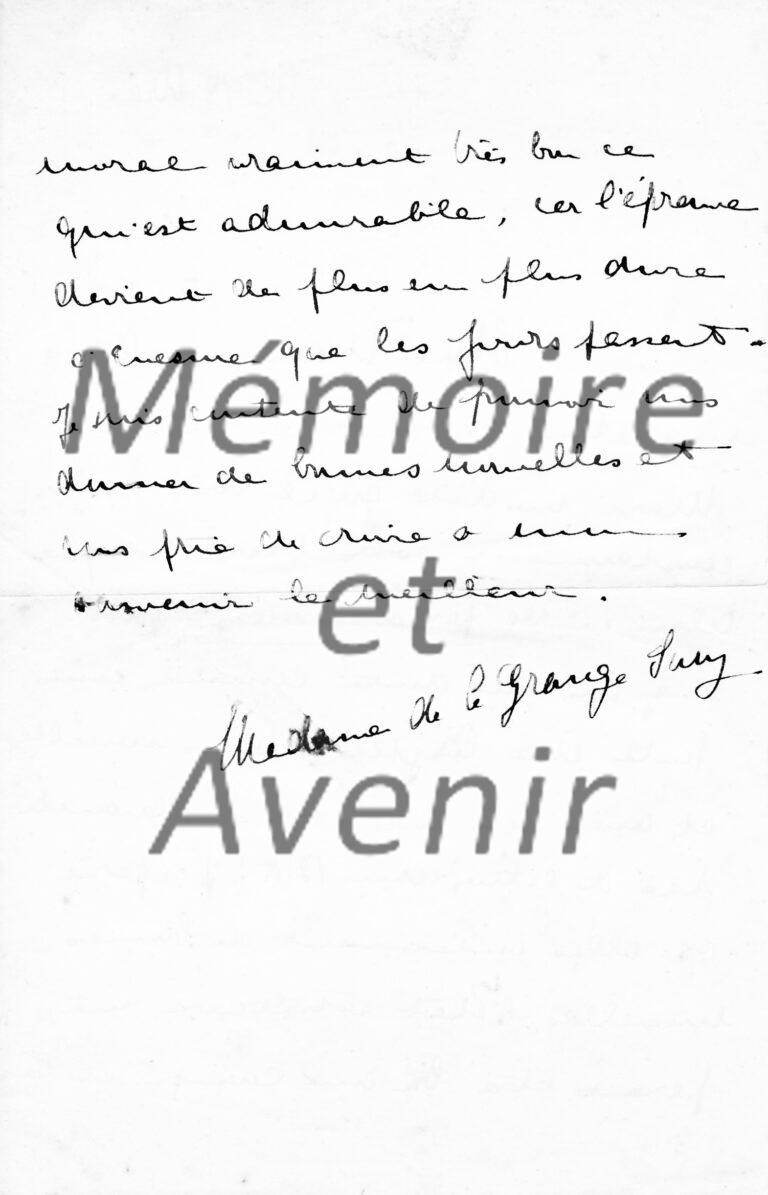 moral vraiment très bon ce
qui est admirable, car l'épreuve
devient de plus en plus dure
à mesure que les jours passent.
Je suis contente de pouvoir vous
donner de bonnes nouvelles et
vous prie de croire à mon
souvenir le meilleur.
Madame de la Grange
Mémoire
et
Avenir